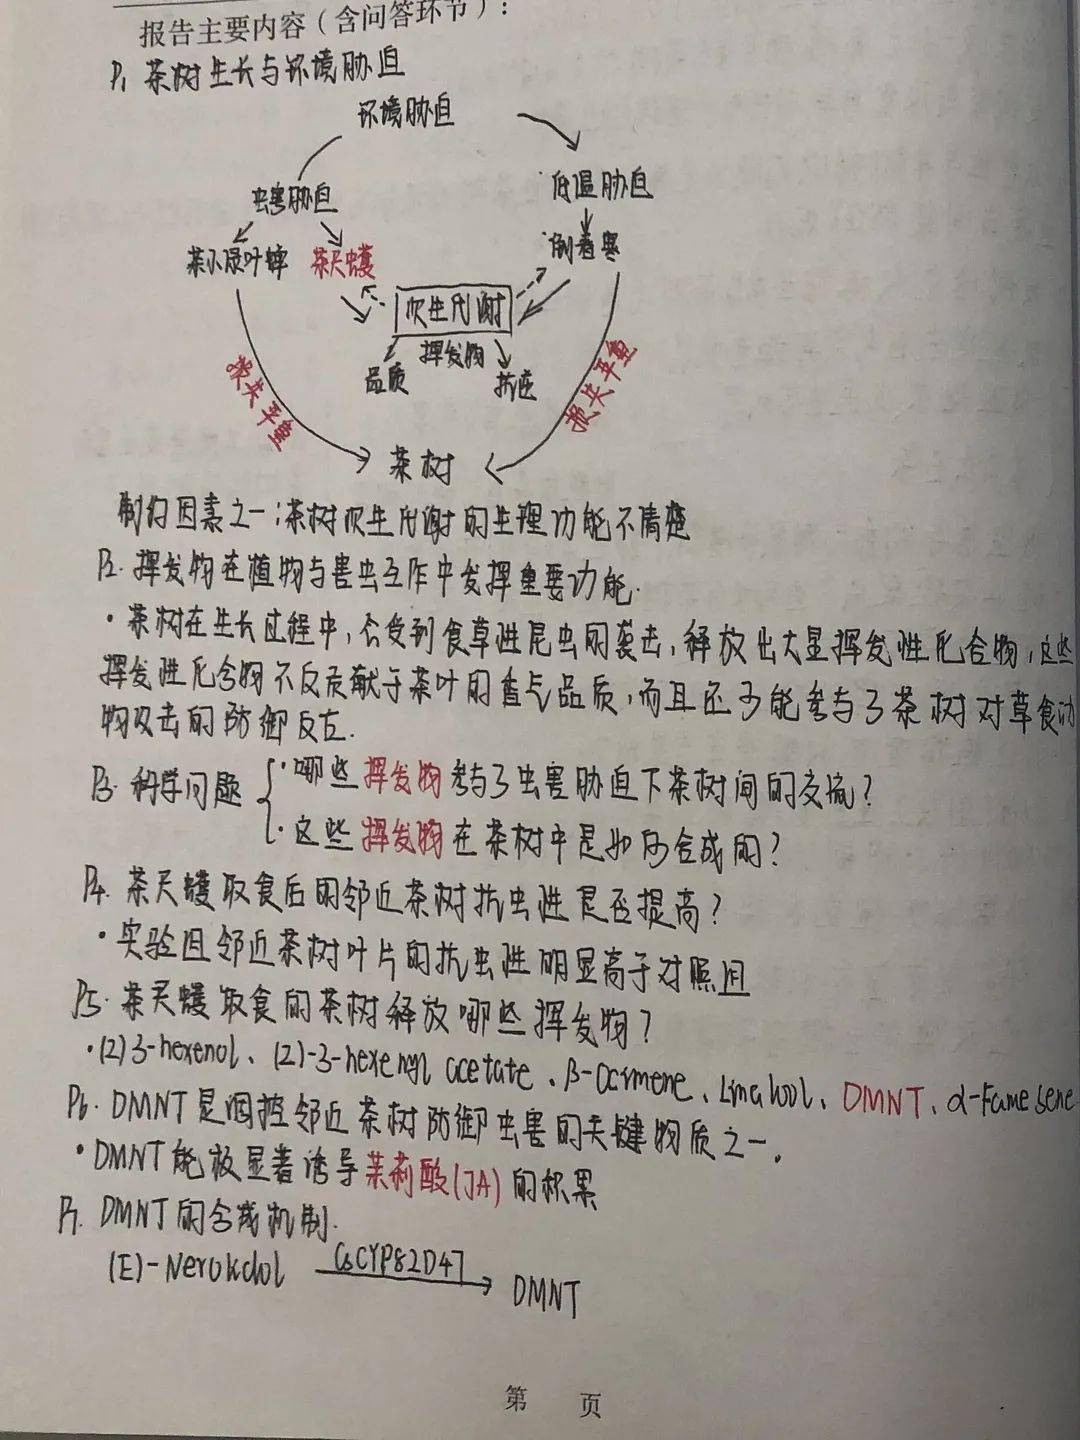 报告主要内容（含问答环节）：
P1 茶树生长与环境胁迫
环境胁迫
虫害胁迫 低温胁迫
茶小绿叶蝉 茶尺蠖 倒春寒
次生代谢
挥发物
品质 抗逆
损失严重 损失严重
茶树
制约因素之一：茶树次生代谢的生理功能不清楚
P2. 挥发物在植物与害虫互作中发挥重要功能.
·茶树在生长过程中，会受到食草性昆虫的袭击，释放出大量挥发性化合物，这些
挥发性化合物不仅贡献于茶叶的香气品质，而且还可能参与了茶树对草食动
物攻击的防御反应.
P3. 科学问题 { ·哪些挥发物参与了虫害胁迫下茶树间的交流？
·这些挥发物在茶树中是如何合成的？
P4. 茶尺蠖取食后的邻近茶树抗虫性是否提高？
·实验组邻近茶树叶片的抗虫性明显高于对照组
P5. 茶尺蠖取食的茶树释放哪些挥发物？
·(Z)3-hexenol、(Z)-3-hexenyl acetate、β-Ocimene、Linalool、DMNT、α-Farnesene
P6. DMNT是调控邻近茶树防御虫害的关键物质之一.
·DMNT能极显著诱导茉莉酸(JA)的积累
P7. DMNT的合成机制.
(E)-Nerolidol CsCYP82D47 DMNT
第 页